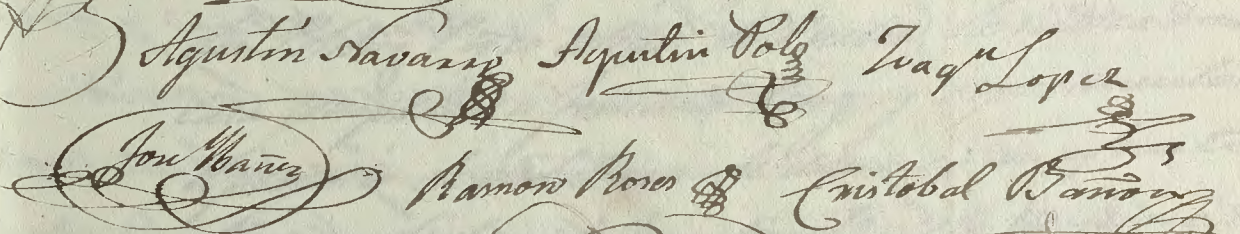 Agustin Navarro Agustin Polo Juaqn Lopez
Jose Ybañez Ramon Roses Cristobal Bañon